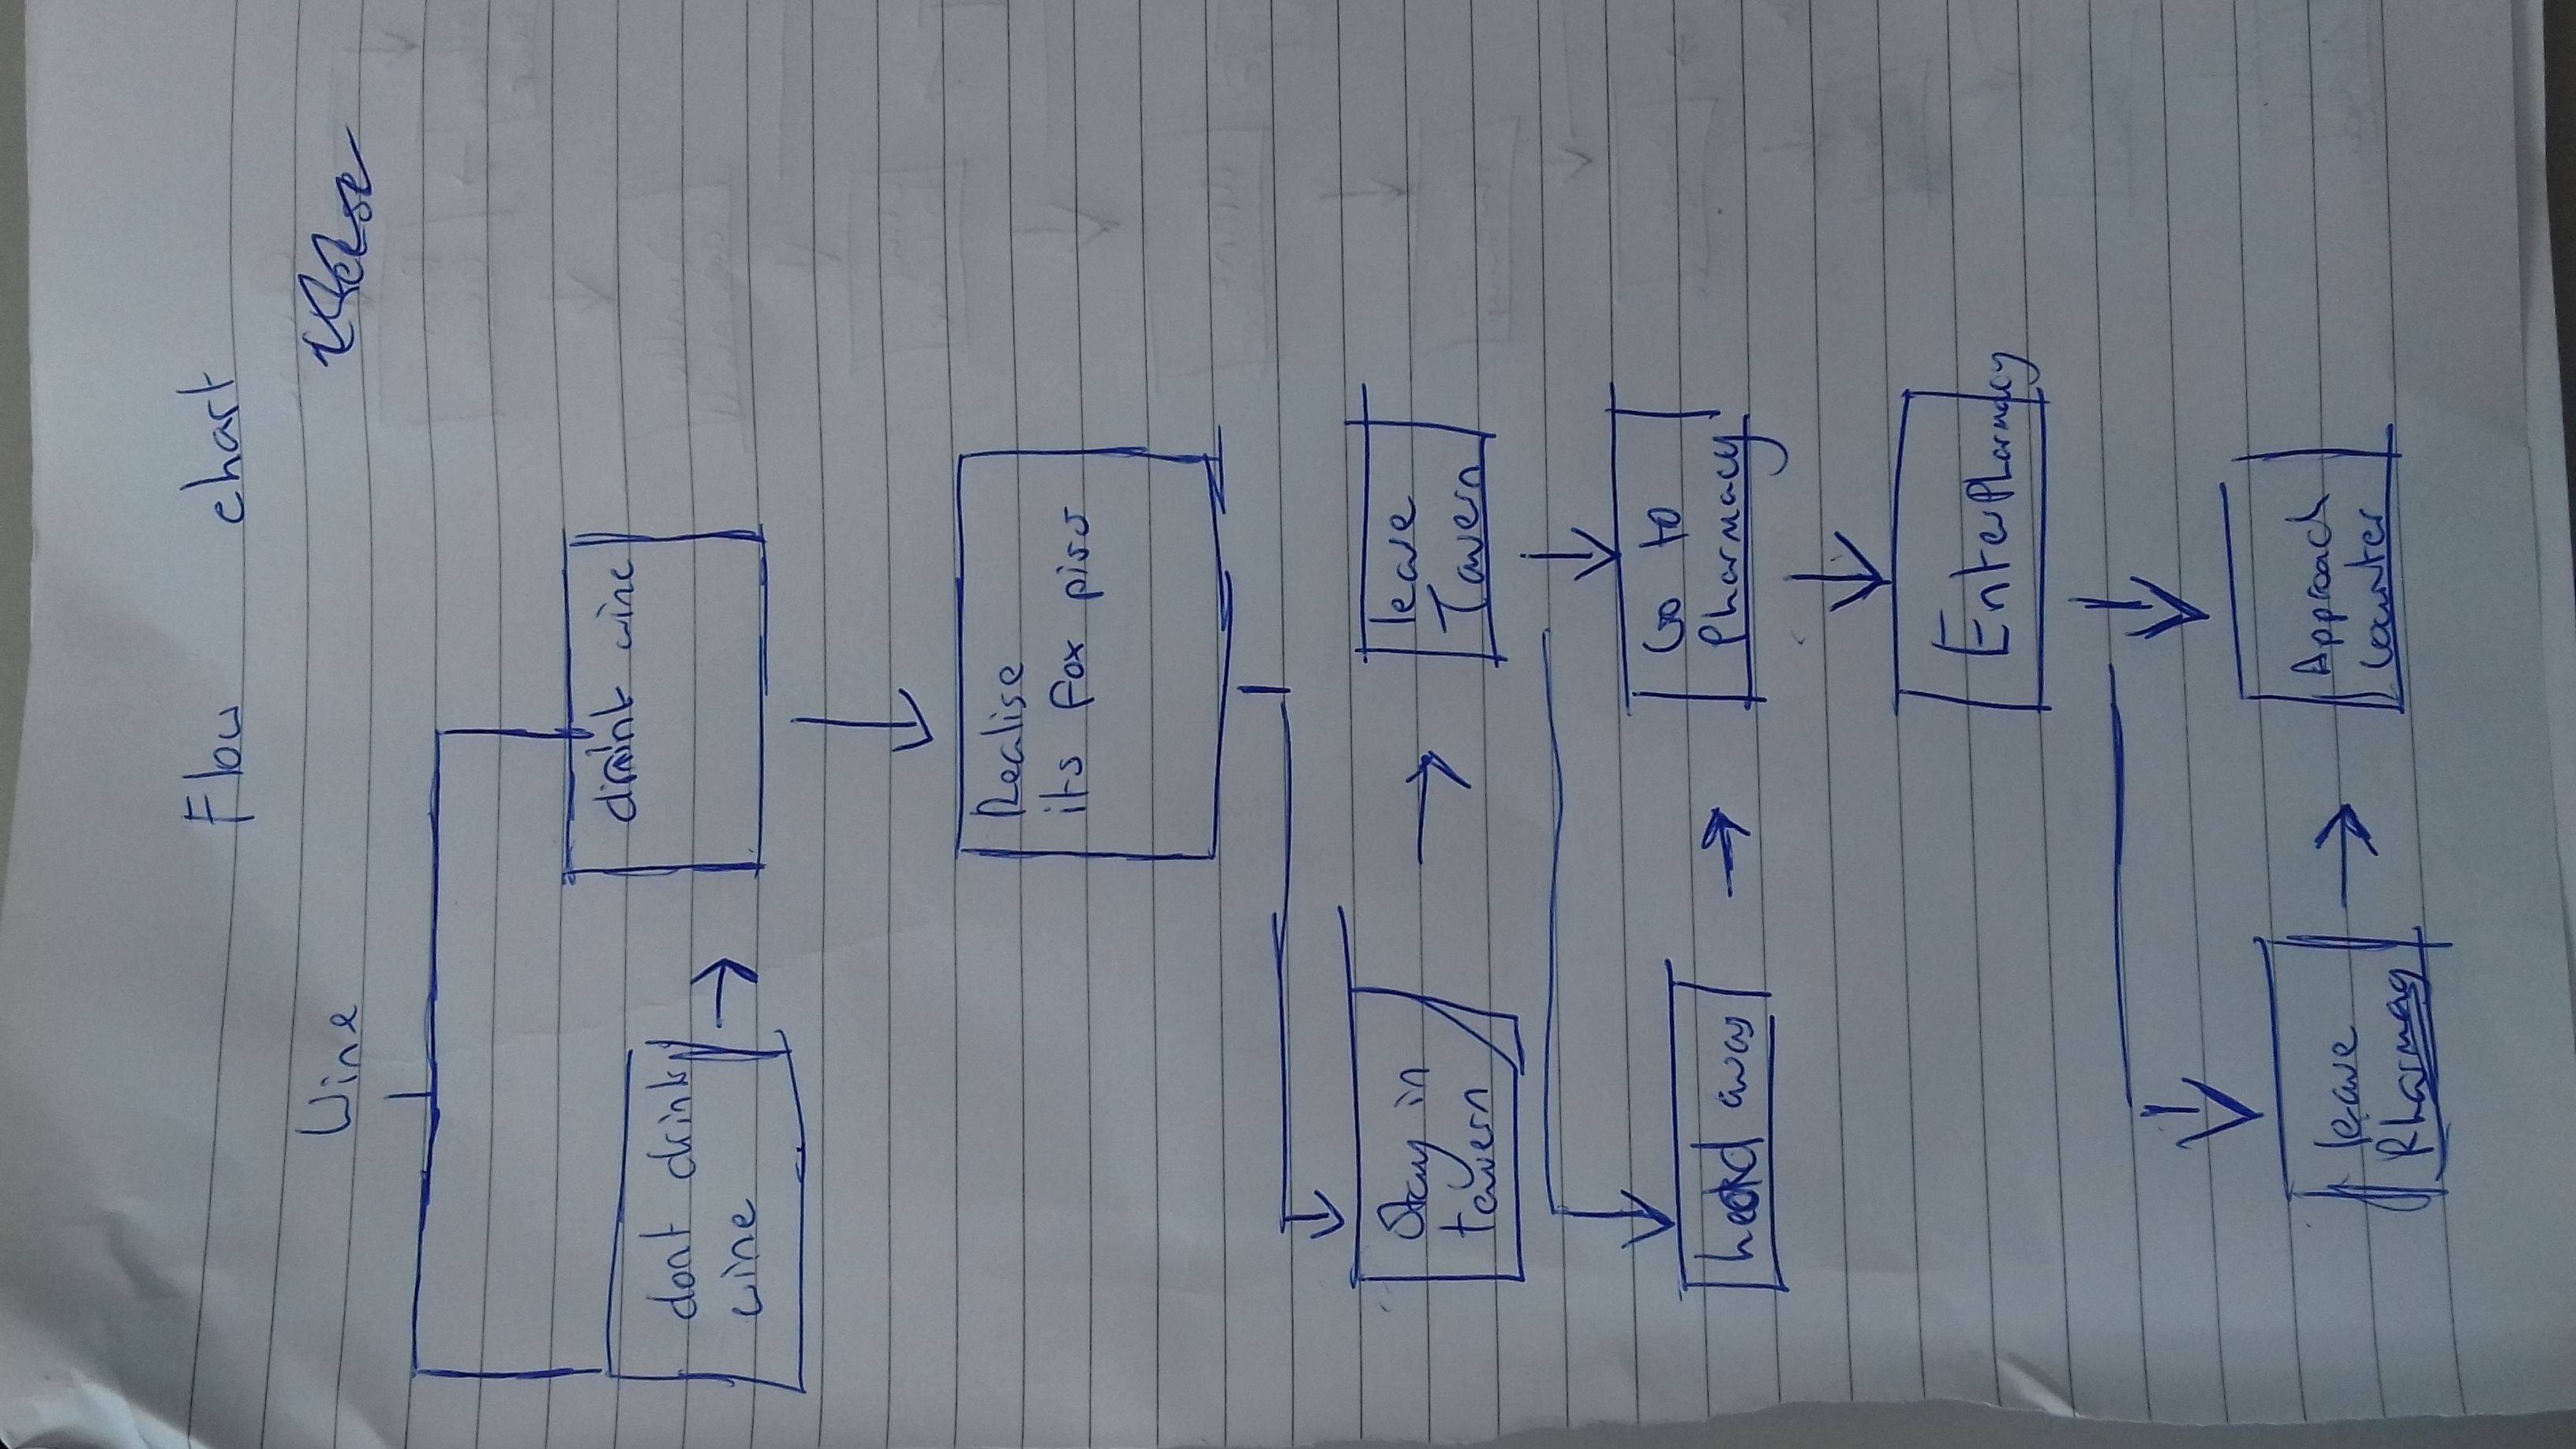 Flow chart
Wine
dont drink
wine
drint wine
Realise
its fox piss
Stay in
tavern
leave
Tavern
head away
Go to
Pharmacy
Enter Pharmacy
leave
Pharmacy
Approach
Counter